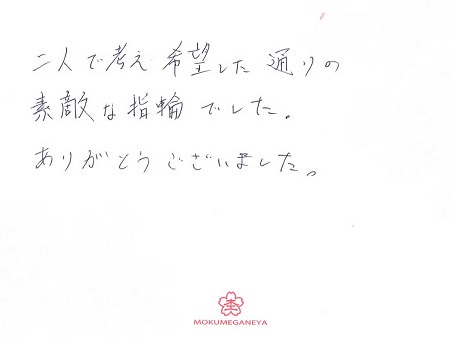 二人で考え希望した通りの
素敵な指輪でした。
ありがとうございました。
MOKUMEGANEYA